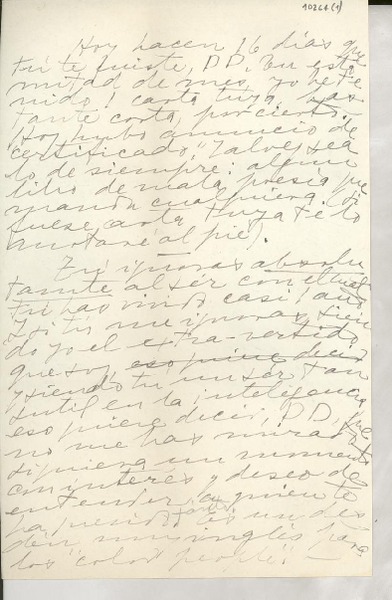 10264(1)
Hoy hacen 16 días que
tú te fuiste, D D. En esta
mitad de mes, yo he te
nido 1 carta tuya, bas
tante corta, por cierto.
Hoy hubo anuncio de
certificado. Tal vez sea
lo de siempre: algún
libro de mala poesía que
manda cualquiera. (Si
fuese carta tuya te lo
anotaré al pie).
Tú ignoras absolu
tamente al sér con el cual
tú has vivido casi 1 año
Y si tú me ignoras, sien
do yo el extra-vertido
que soy, eso quiere decir
y siendo tú un ser tan
sutil en la inteligencia
eso quiere decir, D D, que
no me has mirado
siquiera un momento
con interés y deseo de
entender a quien te
ha puesto es un des
dén muy inglés para
los "color people".